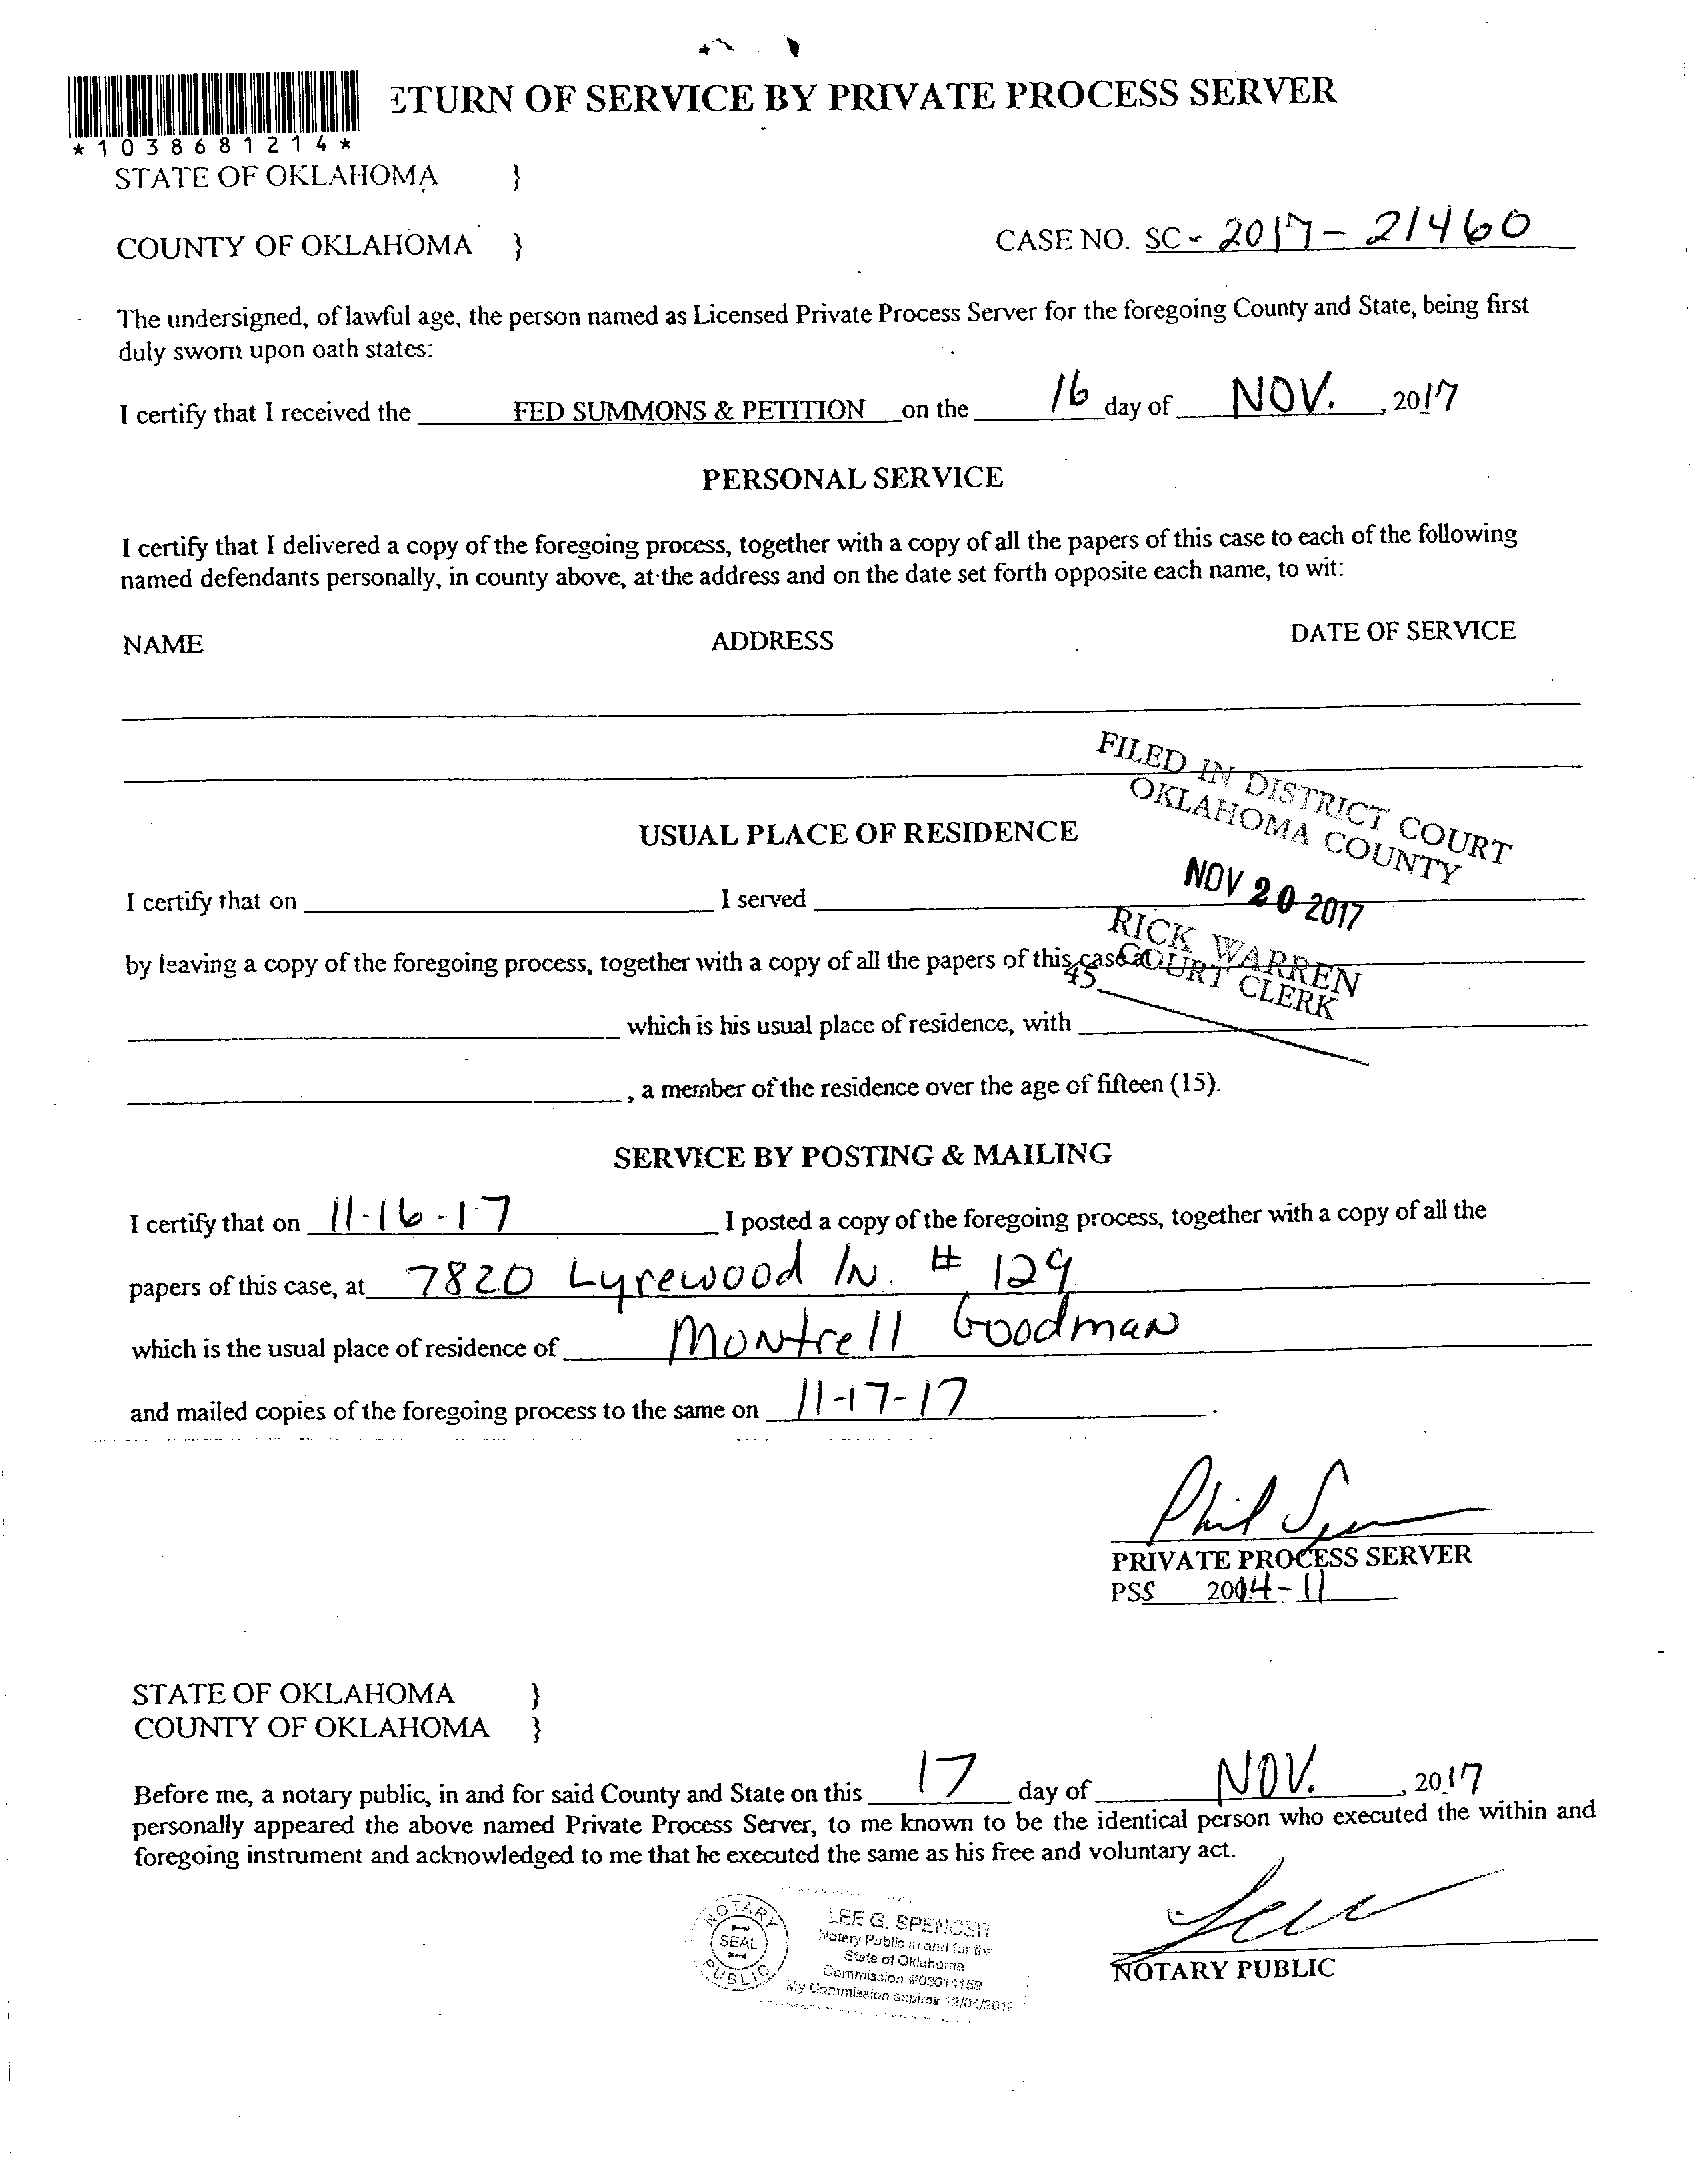 ETURN OF SERVICE BY PRIVATE PROCESS SERVER
*1038681214*
STATE OF OKLAHOMA }
COUNTY OF OKLAHOMA }
CASE NO. SC - 2017 - 21460
The undersigned, of lawful age, the person named as Licensed Private Process Server for the foregoing County and State, being first
duly sworn upon oath states:
I certify that I received the FED SUMMONS & PETITION on the 16 day of NOV. , 2017
PERSONAL SERVICE
I certify that I delivered a copy of the foregoing process, together with a copy of all the papers of this case to each of the following
named defendants personally, in county above, at the address and on the date set forth opposite each name, to wit:
NAME ADDRESS DATE OF SERVICE
FILED IN DISTRICT COURT
OKLAHOMA COUNTY
NOV 20 2017
RICK WARREN
COURT CLERK
45
USUAL PLACE OF RESIDENCE
I certify that on I served
by leaving a copy of the foregoing process, together with a copy of all the papers of this case at
which is his usual place of residence, with
, a member of the residence over the age of fifteen (15).
SERVICE BY POSTING & MAILING
I certify that on 11-16-17 I posted a copy of the foregoing process, together with a copy of all the
papers of this case, at 7820 Lyrewood ln. # 129
which is the usual place of residence of Montrell Goodman
and mailed copies of the foregoing process to the same on 11-17-17 .
Phil
PRIVATE PROCESS SERVER
PSS 2004-11
STATE OF OKLAHOMA }
COUNTY OF OKLAHOMA }
Before me, a notary public, in and for said County and State on this 17 day of NOV. , 2017
personally appeared the above named Private Process Server, to me known to be the identical person who executed the within and
foregoing instrument and acknowledged to me that he executed the same as his free and voluntary act.
NOTARY PUBLIC
SEAL
LEE G. SPENCER
Notary Public in and for the
State of Oklahoma
Commission
My Commission expires
NOTARY PUBLIC